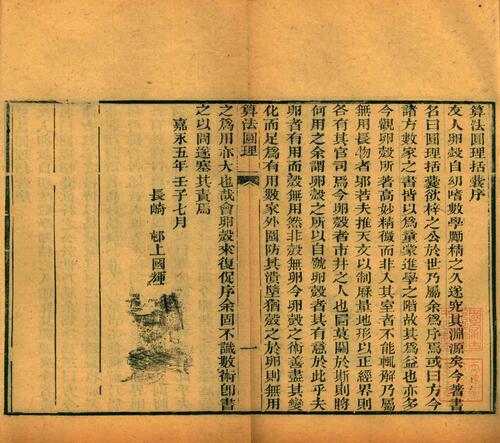 算法圓理括囊序
友人卵殼自幼嗜數學勵精之久遂究其淵源矣今著書
名曰圓理括囊欲梓之公於世乃屬余爲序焉或曰方今
諸方數家之書皆以爲童蒙進學之階故其爲益也亦多
今觀卵殼所著高妙精微而非入其室者不能輒解乃屬
無用長物者邪若夫推天文以制厤量地形以正經界則
各有其官司焉今卵殼者市井之人也固莫關於斯則將
何用之余謂卵殼之所以自號卵殼者其有意於此乎夫
卵者有用而殼無用然非殼無卵今卵殼之術善盡其變
化而足爲有用數家外圍防其潰墮猶殼之於卵則無用
算法圓理
一
之爲用亦大也哉會卵殼來復促序余固不識數術卽書
之以同遂塞其責焉
嘉永五年壬子七月
長崎 邨上國